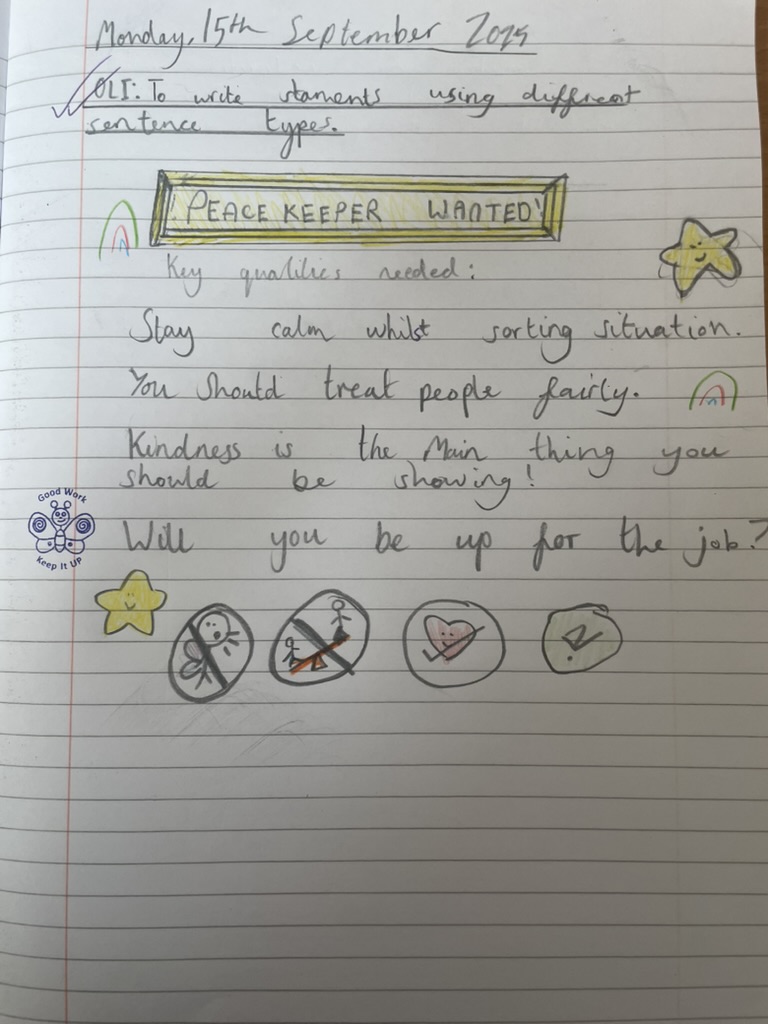 Monday, 15th September 2025
OLI: To write staments using different
sentence types.
PEACEKEEPER WANTED!
Key qualities needed:
Stay calm whilst sorting situation.
You should treat people fairly.
Kindness is the Main thing you
should be showing!
Good Work
Keep It UP
Will you be up for the job?
?